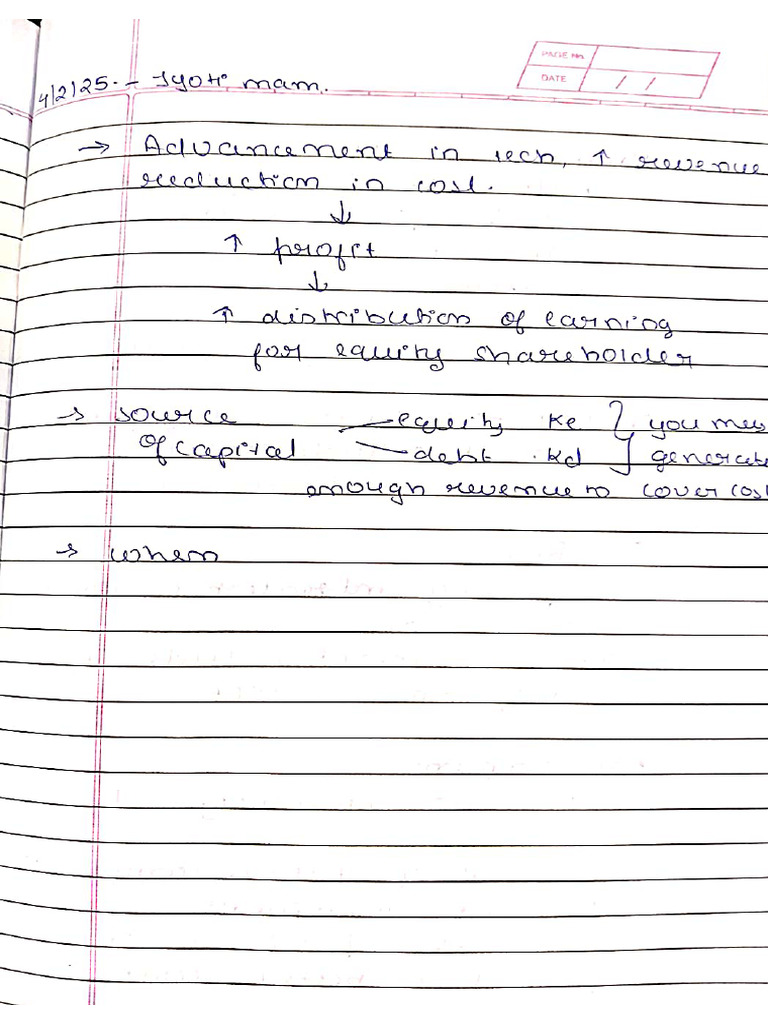 PAGE No.
DATE / /
4/2/25. - Jyoti mam.
→ Advancement in tech, ↑ revenue
reduction in cost.
↓
↑ profit
↓
↑ distribution of earning
for equity shareholder
→ source equity Ke } you mus
of capital debt . Kd } generate
enough revenue to cover cost
→ when